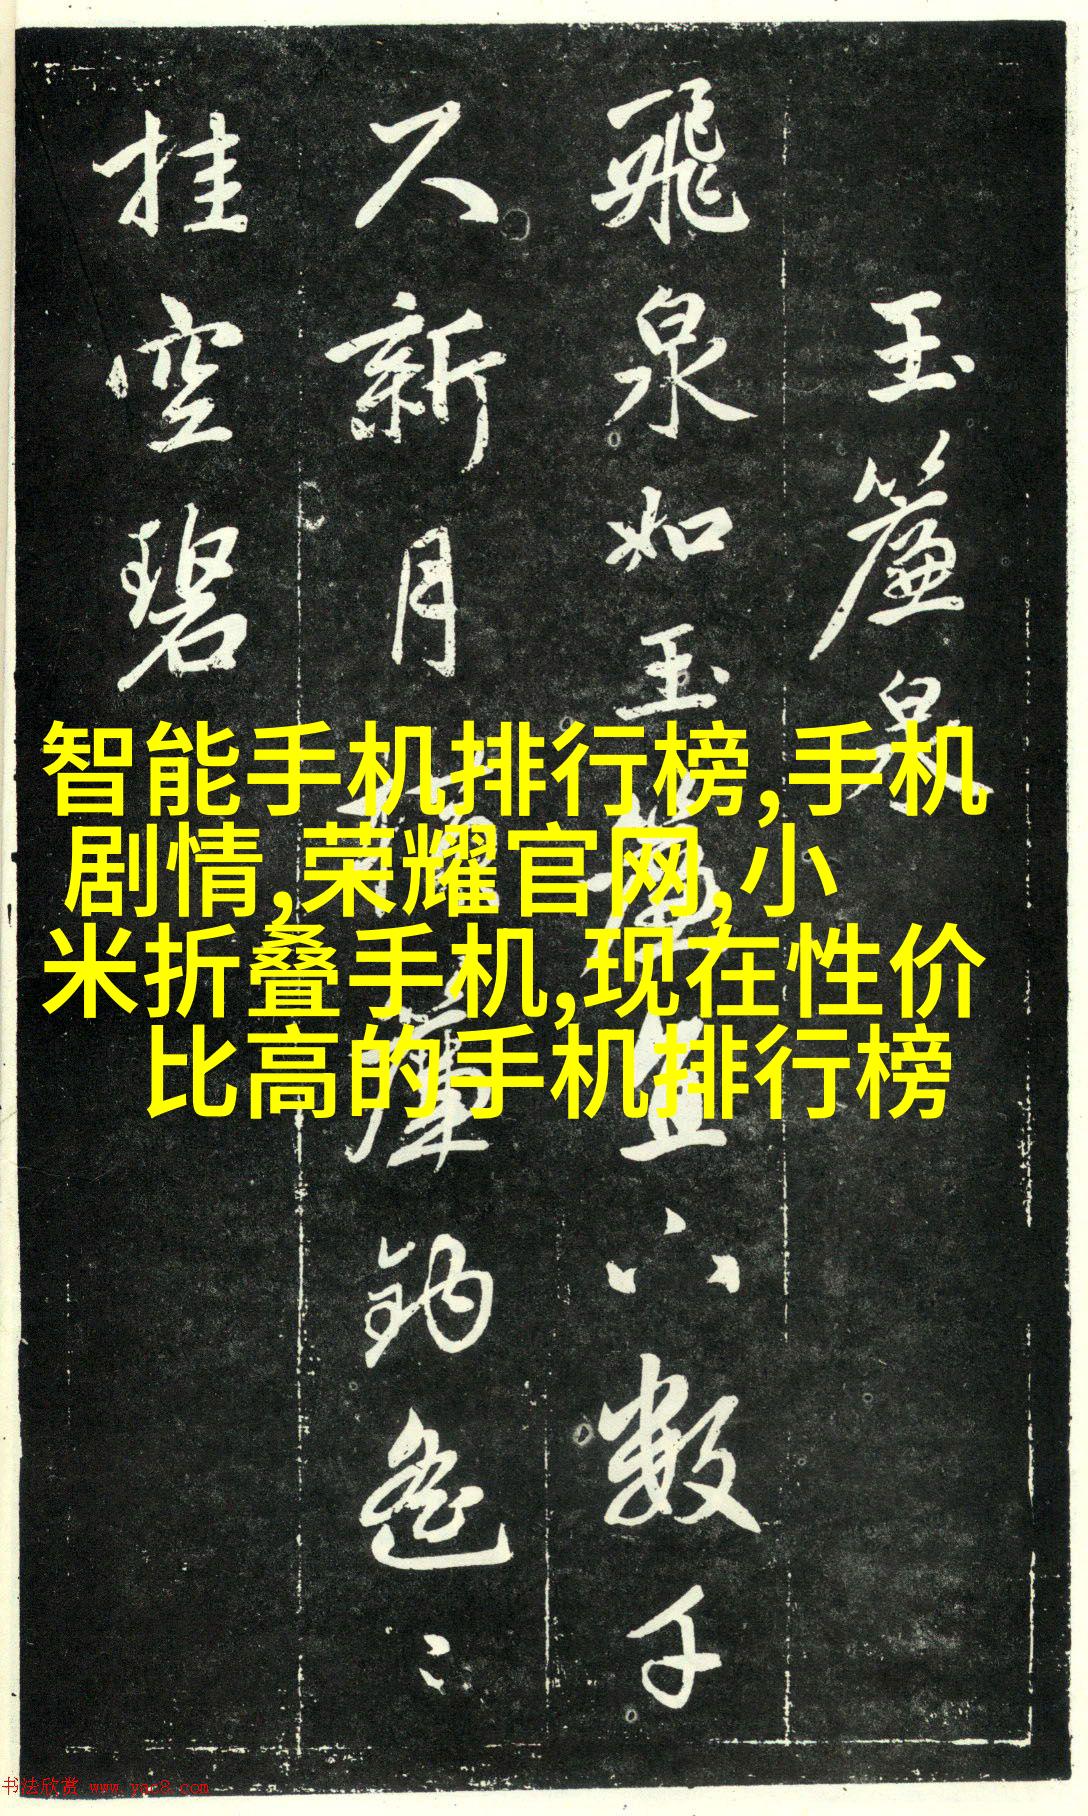 玉簾泉
飛泉如玉簾直下數千
尺新月橫簾鈎遙〻
挂空碧
智能手机排行榜,手机
剧情,荣耀官网,小
米折叠手机,现在性价
比高的手机排行榜
书法欣赏 www.yac8.com